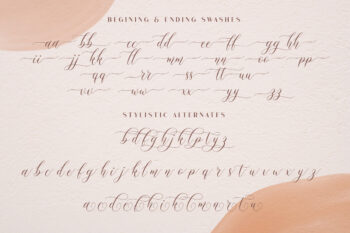 BEGINING & ENDING SWASHES
aa bb cc dd ee ff gg hh
ii jj kk ll mm nn oo pp
qq rr ss tt uu
vv ww xx yy zz
STYLISTIC ALTERNATES
bdfghjklptyz
abcdefghijklmnopqrstuvwxyz